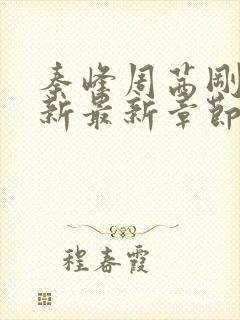 秦峰周茜刚
新最新章节
程春霞